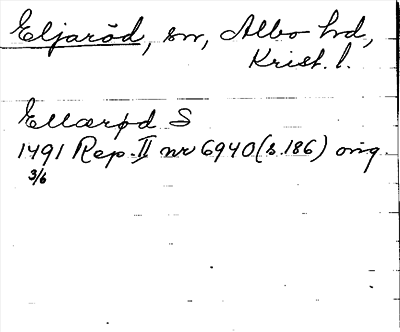 Eljaröd, sn, Albo hd,
Krist. l.
Ellærød S
1491 Rep. II nr 6940 (s. 186) orig.
3/6